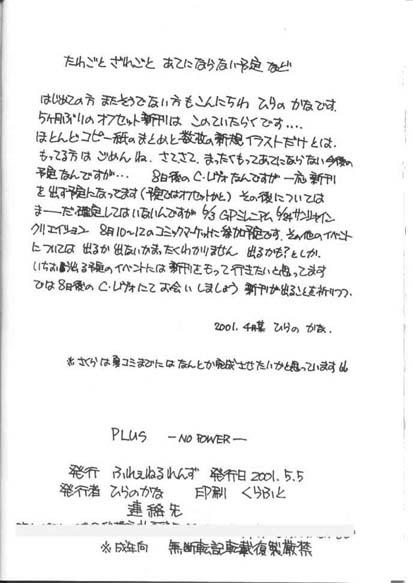 たわごと ざれごと あてにならない予定 など
はじめての方 またそうでない方も こんにちわ ひらの かな です.
5ヶ月ぶりの オフセット新刊は このていたらくです....
ほとんど コピー紙のまとめと 数枚の新規イラストだけ とは.
もってる方は ごめんね. さてさて. まったくもって あてにならない 今後の
予定なんですが... 8日後の C・レヴォ なんですが 一応 新刊
を出す予定になってます(予定ではオフセットかと) その後については
まーだ確定してはいないんですが
クリエイション 8月10〜12のコミックマーケットに参加予定です. その他のイベント
については 出るか 出ないか まったくわかりません 出るかも?としか.
いちお 出る予定のイベントには 新刊をもって行きたいと思ってます
では 8日後の C・レヴォにて お会いしましょう 新刊が出ることを祈りつつ.
2001. 4月某 ひらの かな.
※さくらは夏コミまでには なんとか完成させたいかと思っています
PLUS ―NO POWER―
発行 ふれぇねるれんず 発行日 2001.5.5
発行者 ひらのかな 印刷 くらふと
連絡先
※成年向 無断転記転載複製厳禁